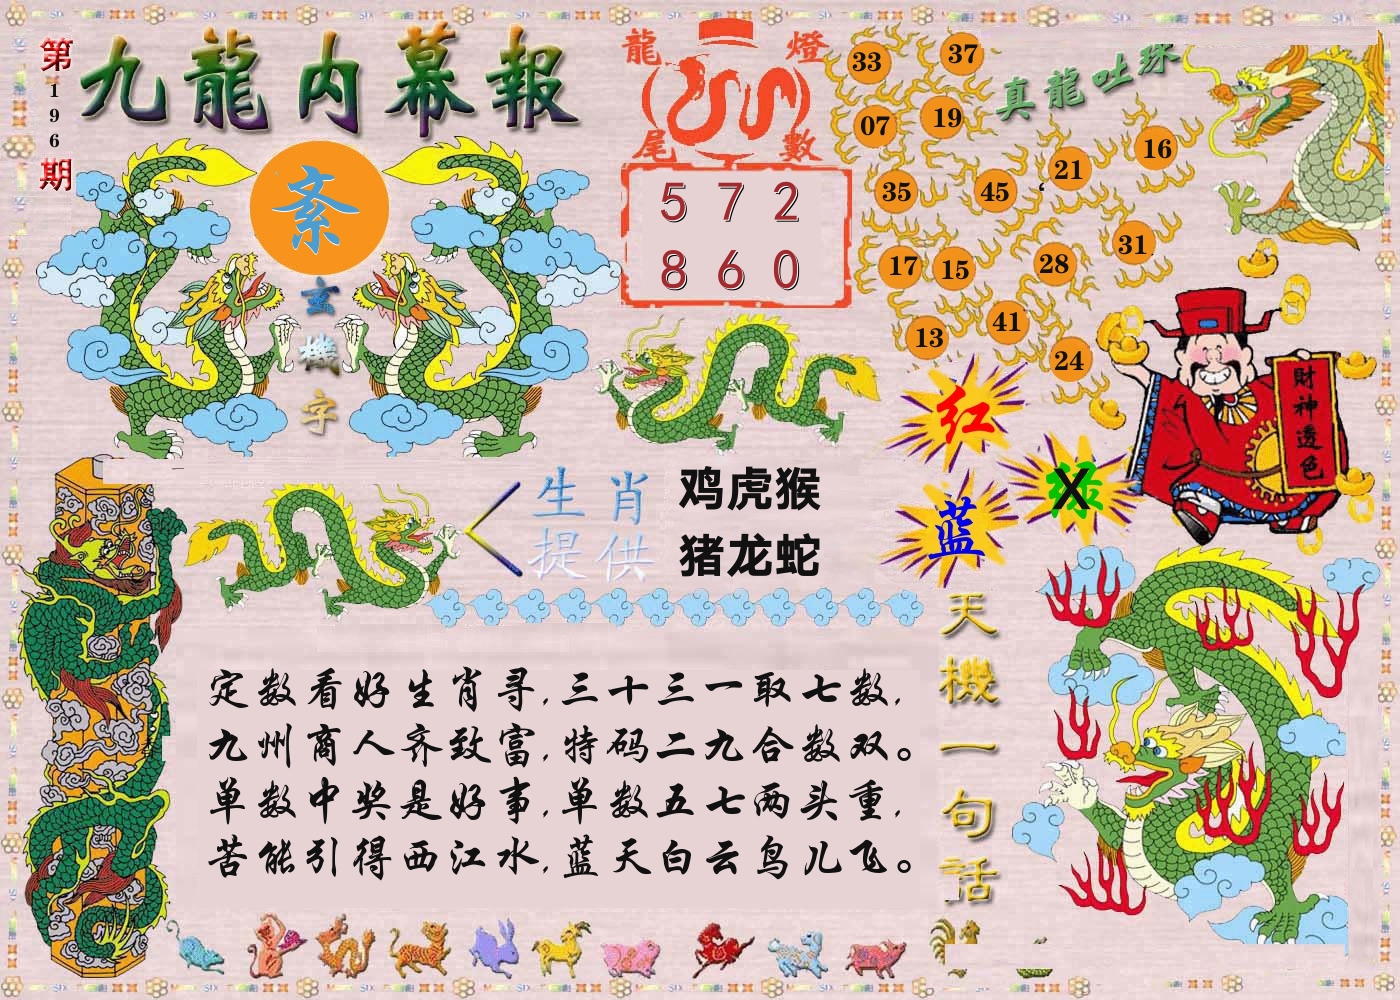 第196期
九龍内幕報
紊
玄機字
龍燈尾數
5 7 2
8 6 0
真龍吐珠
33
37
07
19
16
21
35
45
31
17
15
28
13
41
24
财神透色
红
蓝
绿
X
生肖提供
鸡虎猴
猪龙蛇
天機一句話
定数看好生肖寻,三十三一取七数,
九州商人齐致富,特码二九合数双。
单数中奖是好事,单数五七两头重,
苦能引得西江水,蓝天白云鸟儿飞。